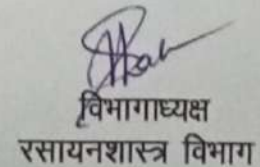 विभागाध्यक्ष
रसायनशास्त्र विभाग